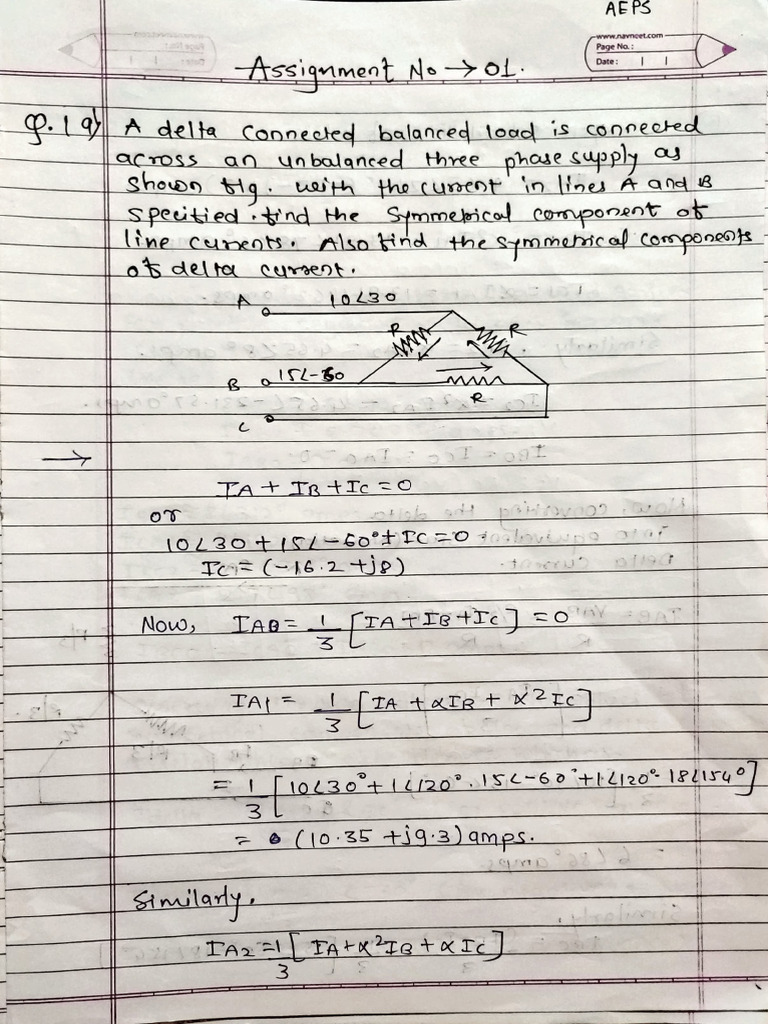 AEPS
www.navneet.com
Page No.:
Date:
Assignment No → 01.
Q.1 a) A delta connected balanced load is connected
across an unbalanced three phase supply as
shown fig. with the current in lines A and B
specified. find the Symmetrical component of
line currents. Also find the symmetrical components
of delta current.
A 10∠30
R R
B 15∠-60
R
C
→
IA + IB + IC = 0
or
10∠30 + 15∠-60° + IC = 0
IC = (-16.2 + j8)
Now, IA0 = 1/3 [IA + IB + IC] = 0
IA1 = 1/3 [IA + αIB + α² IC]
= 1/3 [10∠30° + 1∠120° · 15∠-60° + 1∠120° · 18∠154°]
= (10.35 + j9.3) amps.
Similarly,
IA2 = 1/3 [IA + α²IB + α IC]